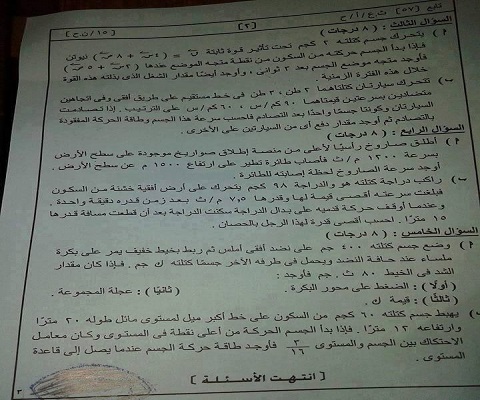 تابع [٥٧] ث.ع/أ/ح [٢] [١٥/ث.ع/ح]
السؤال الثالث : ( ٨ درجات )
أ ) يتحرك جسم كتلته ٢ كجم تحت تأثير قوة ثابتة ق = ( ٤ س + ٨ ص ) نيوتن
فإذا بدأ الجسم حركته من السكون من نقطة متجه الموضع عندها ( ٢ س + ٥ ص )
فأوجد متجه موضع الجسم بعد ٢ ثوانى ، وأوجد أيضًا مقدار الشغل الذى بذلته هذه القوة
خلال هذه الفترة الزمنية .
ب) تتحرك سيارتان كتلتاهما ٢ طن ، ٣ طن فى خط مستقيم على طريق أفقى وفى اتجاهين
متضادين بسرعتين قيمتاهما ٩٠ كم/س ، ٦٠ كم/س على الترتيب . إذا تصادمت
السيارتان وكونتا جسمًا واحدًا بعد التصادم فاحسب سرعة هذا الجسم وطاقة الحركة المفقودة
بالتصادم ثم أوجد مقدار دفع أى من السيارتين على الأخرى .
السؤال الرابع : ( ٨ درجات )
أ ) أطلق صاروخ رأسيًا لأعلى من منصة إطلاق صواريخ موجودة على سطح الأرض
بسرعة ١٣٠٠ م/ث فأصاب طائرة تطير على ارتفاع ١٥٠٠ م عن سطح الأرض .
أوجد سرعة الصاروخ لحظة إصابته للطائرة .
ب) راكب دراجة كتلته هو والدراجة ٩٨ كجم يتحرك على أرض أفقية خشنة من السكون
فبلغت سرعته أقصى قيمة لها وقدرها ٧,٥ م/ث بعد زمن قدره دقيقة واحدة .
وعندما أوقف حركة قدميه على بدال الدراجة سكنت الدراجة بعد أن قطعت مسافة قدرها
١٥ مترًا . احسب أقصى قدرة لهذا الرجل بالحصان .
السؤال الخامس : ( ٨ درجات )
أ ) وضع جسم كتلته ٤٠٠ جم على نضد أفقى أملس ثم ربط بخيط خفيف يمر على بكرة
ملساء عند حافة النضد ويحمل فى طرفه الآخر جسمًا كتلته ك جم . فإذا كان مقدار
الشد فى الخيط ٨٠ ث.جم فأوجد :
(أولاً) : الضغط على محور البكرة . (ثانيًا) : عجلة المجموعة .
(ثالثًا) : قيمة ك .
ب) يهبط جسم كتلته ٦٠ كجم من السكون على خط أكبر ميل لمستوى مائل طوله ٢٠ مترًا
وارتفاعه ١٢ مترًا . فإذا بدأ الجسم الحركة من أعلى نقطة فى المستوى وكان معامل
الاحتكاك بين الجسم والمستوى ٣/١٦ فأوجد طاقة حركة الجسم عندما يصل إلى قاعدة
المستوى .
[ انتهت الأسئلة ]